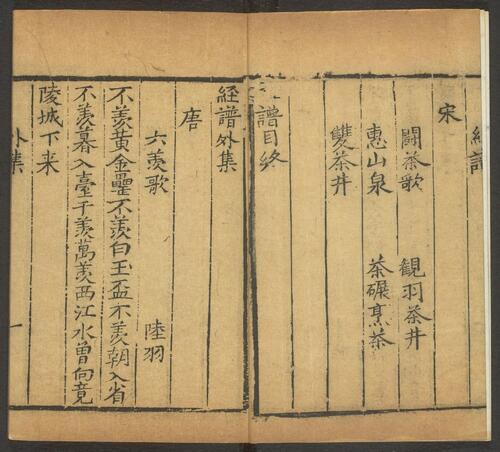 宋
鬪茶歌 觀羽茶井
惠山泉 茶碾烹茶
雙茶井
譜目終
經譜外集
唐
六羨歌 陸羽
不羨黃金罍不羨白玉盃不羨朝入省
不羨暮入臺千羨萬羨西江水曾向竟
陵城下来
外集 一